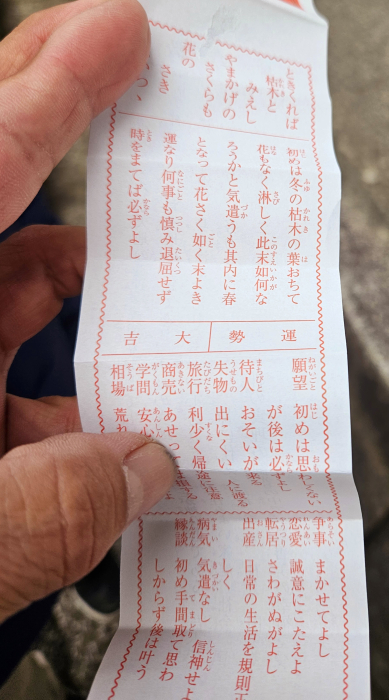 ときくれば
枯木と
みえし
やまかげの
さくらも
花の
さき
初めは冬の枯木の葉おちて
花もなく淋しく此末如何な
ろうかと気遣うも其内に春
となって花さく如く末よき
運なり何事も慎み退屈せず
時をまてば必ずよし
運勢 大吉
願望 初めは思わせない
が後は必ずよし
待人 おそいが来る
失物 出にくい 人に渡る
旅行 利少く帰途に注意
商売 あせっ
学問 安心
相場 荒れ
争事 まかせてよし
恋愛 誠意にこたえよ
転居 さわがぬがよし
出産 日常の生活を規則正
しく
病気 気遣なし 信神せよ
縁談 初め手間取て思わ
しからず後は叶う